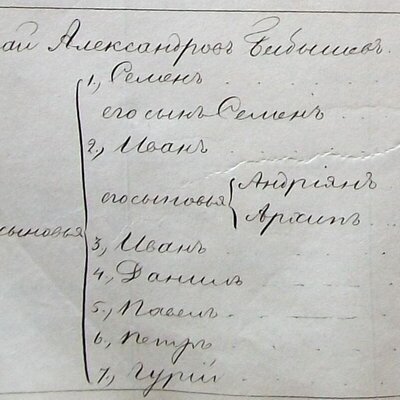 ай Александровъ Бибышевъ.
1., Семенъ
его сынъ Семенъ
2., Иванъ
его сыновья Андріянъ
Архипъ
сыновья
3, Иванъ
4., Данилъ
5., Павелъ
6., Петръ
7., Гурій